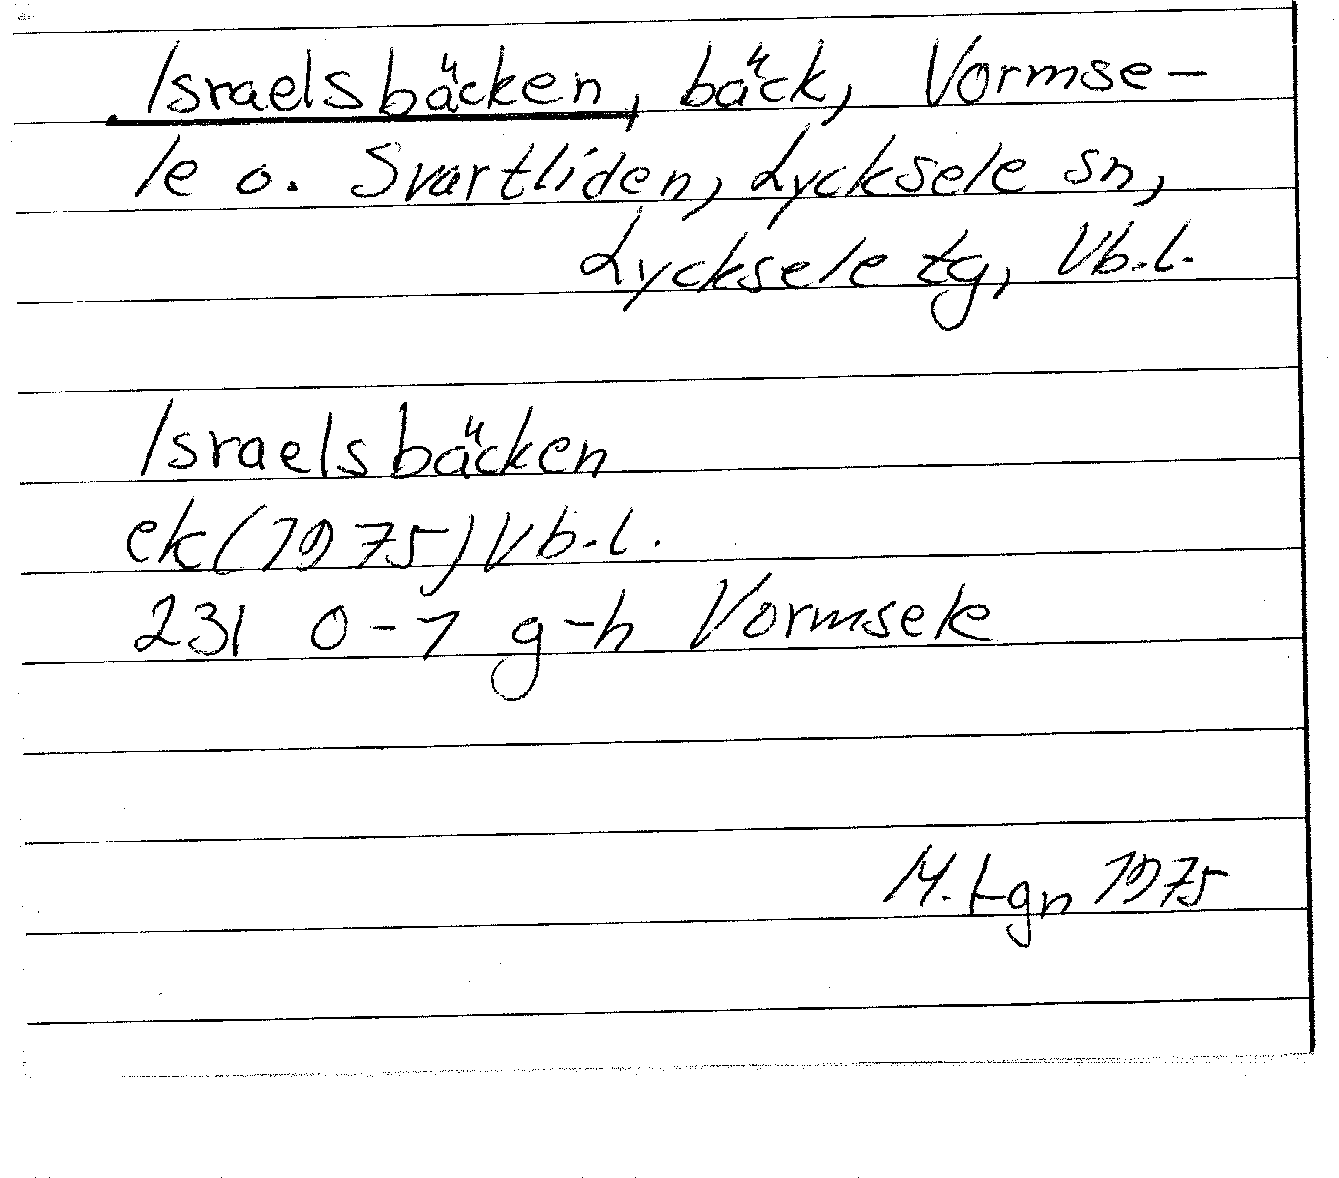 Israelsbäcken, bäck, Vormse-
le o. Svartliden, Lycksele sn,
Lycksele tg, Vb.l.
Israelsbäcken
ek (1975) Vb.l.
231 0-1 g-h Vormsele
M. Lgn 1975